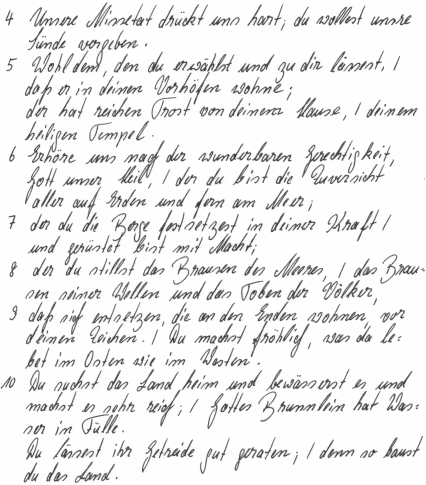 4 Unsere Missetat drückt uns hart; du wollest unsre
Sünde vergeben.
5 Wohl dem, den du erwählst und zu dir lässest, /
daß er in deinen Vorhöfen wohne;
der hat reichen Trost von deinem Hause, / deinem
heiligen Tempel.
6 Erhöre uns nach der wunderbaren Gerechtigkeit,
Gott unser Heil, / der du bist die Zuversicht
aller auf Erden und fern am Meer;
7 der du die Berge festsetzest in deiner Kraft /
und gerüstet bist mit Macht;
8 der du stillst das Brausen des Meeres, / das Brau-
sen seiner Wellen und das Toben der Völker,
9 daß sich entsetzen, die an den Enden wohnen, vor
deinen Zeichen. / Du machst fröhlich, was da le=
bet im Osten wie im Westen.
10 Du suchst das Land heim und bewässerst es und
machst es sehr reich; / Gottes Brünnlein hat Was=
ser in Fülle.
Du lässest ihr Getreide gut geraten; / denn so baust
du das Land.